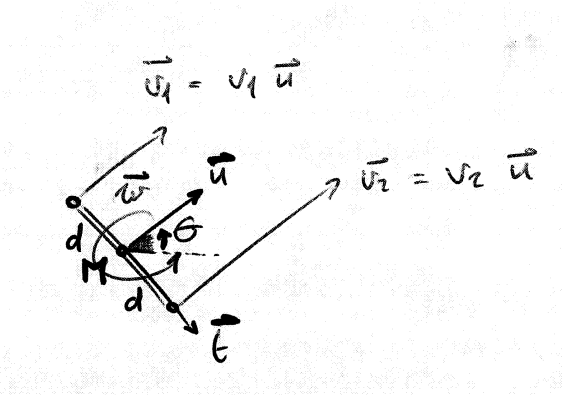 v⃗1 = v1 u⃗
w⃗
u⃗
v⃗2 = v2 u⃗
d
θ
M
d
t⃗